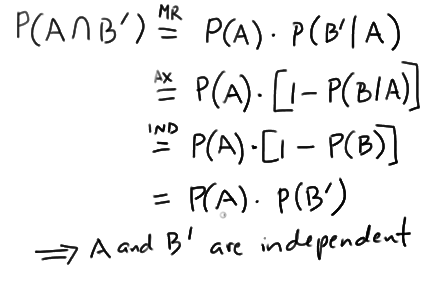 P(A∩B') MR= P(A) · P(B'|A)
AX= P(A) · [1 - P(B|A)]
IND= P(A) · [1 - P(B)]
= P(A) · P(B')
⟹ A and B' are independent